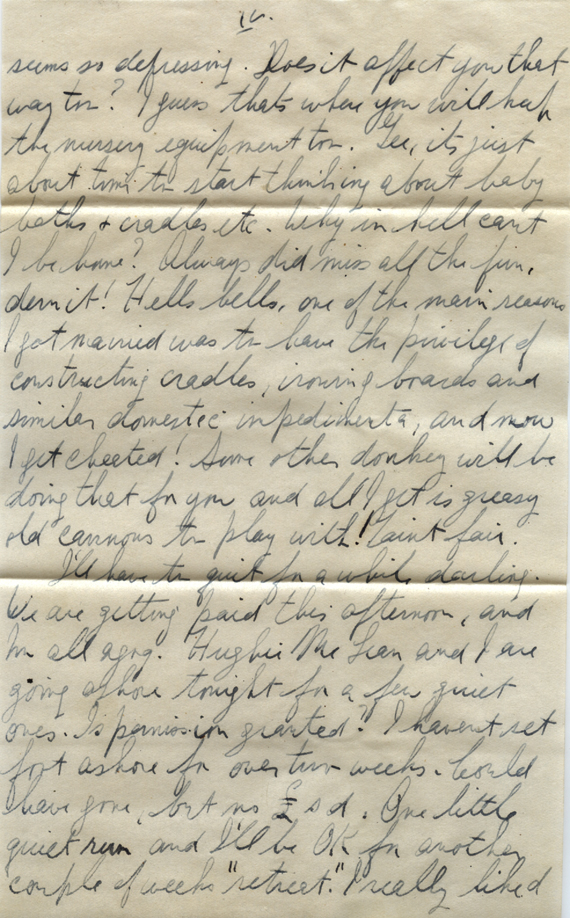 IV.
seems so depressing. Does it affect you that
way too? I guess thats where you will keep
the nursery equipment too. Gee, its just
about time to start thinking about baby
baths & cradles etc. Why in hell can't
I be home? Always did miss all the fun,
dern it! Hells bells, one of the main reasons
I got married was to have the privilege of
constructing cradles, ironing boards and
similar domestic impedimenta, and now
I get cheated! Some other donkey will be
doing that for you and all I get is greasy
old cannons to play with! Taint fair.
I'll have to quit for a while darling.
We are getting paid this afternoon, and
Im all agog. Hughie McLean and I are
going ashore tonight for a few quiet
ones. Is permission granted? I havent set
foot ashore for over two weeks. Could
have gone, but no £ s d. One little
quiet run and I'll be OK for another
couple of weeks "retreat." I really liked